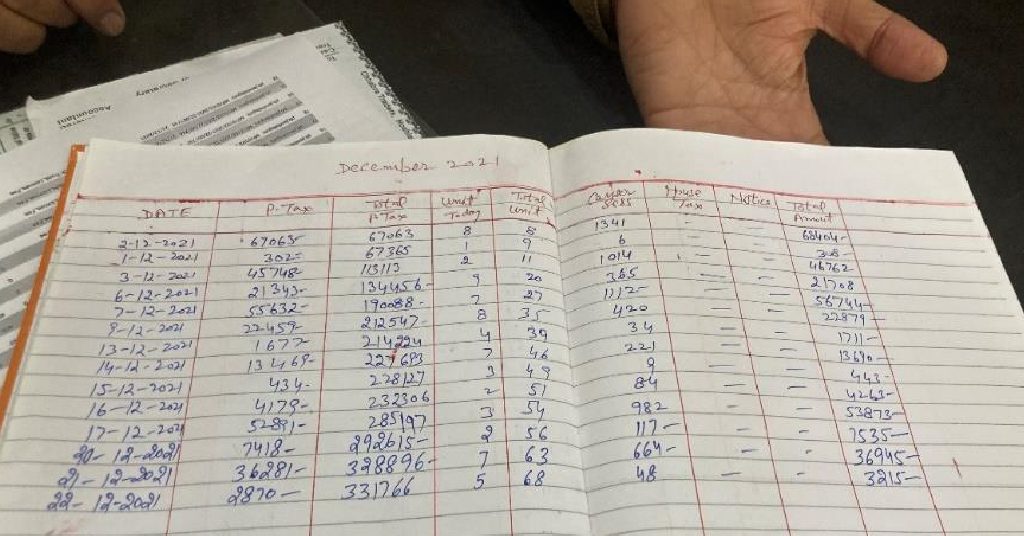 December 2021
DATE P-Tax Total P-Tax Unit Today Total Unit Cess House Tax Notice Total Amount
2-12-2021 67063- 67063 8 8 1341 — — 68404-
1-12-2021 302= 67365 1 9 6 — — 308-
3-12-2021 45748 113113 2 11 1014 — — 46762
6-12-2021 21343- 134456- 9 20 365 — — 21708
7-12-2021 55632- 190088- 7 27 1112- — — 56744-
9-12-2021 22459- 212547- 8 35 420 — — 22879-
13-12-2021 1677- 214224 4 39 34 — — 1711-
14-12-2021 13469- 227693 7 46 221 — — 13690-
15-12-2021 434- 228127 3 49 9 — — 443-
16-12-2021 4179- 232306 2 51 84 — — 4263-
17-12-2021 52891- 285197 3 54 982 — — 53873-
20-12-2021 7418- 292615- 2 56 117- — — 7535-
21-12-2021 36281- 328896- 7 63 664- — — 36945-
22-12-2021 2870- 331766 5 68 48 — — 3215-
Accountant